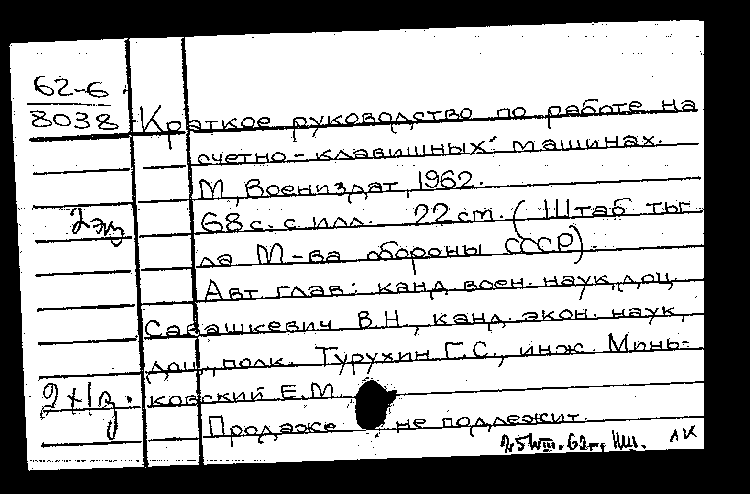 62-6
8038 Краткое руководство по работе на
счетно-клавишных машинах.
М., Воениздат, 1962.
2 экз 68 с. с илл. 22 см. (Штаб ты
ла М-ва обороны СССР).
Авт. глав: канд. воен. наук, доц.
Савашкевич В.Н., канд. экон. наук,
доц., полк. Турухин Г.С., инж. Минь-
ковский Е.М.
Продаже не подлежит.
ЛК